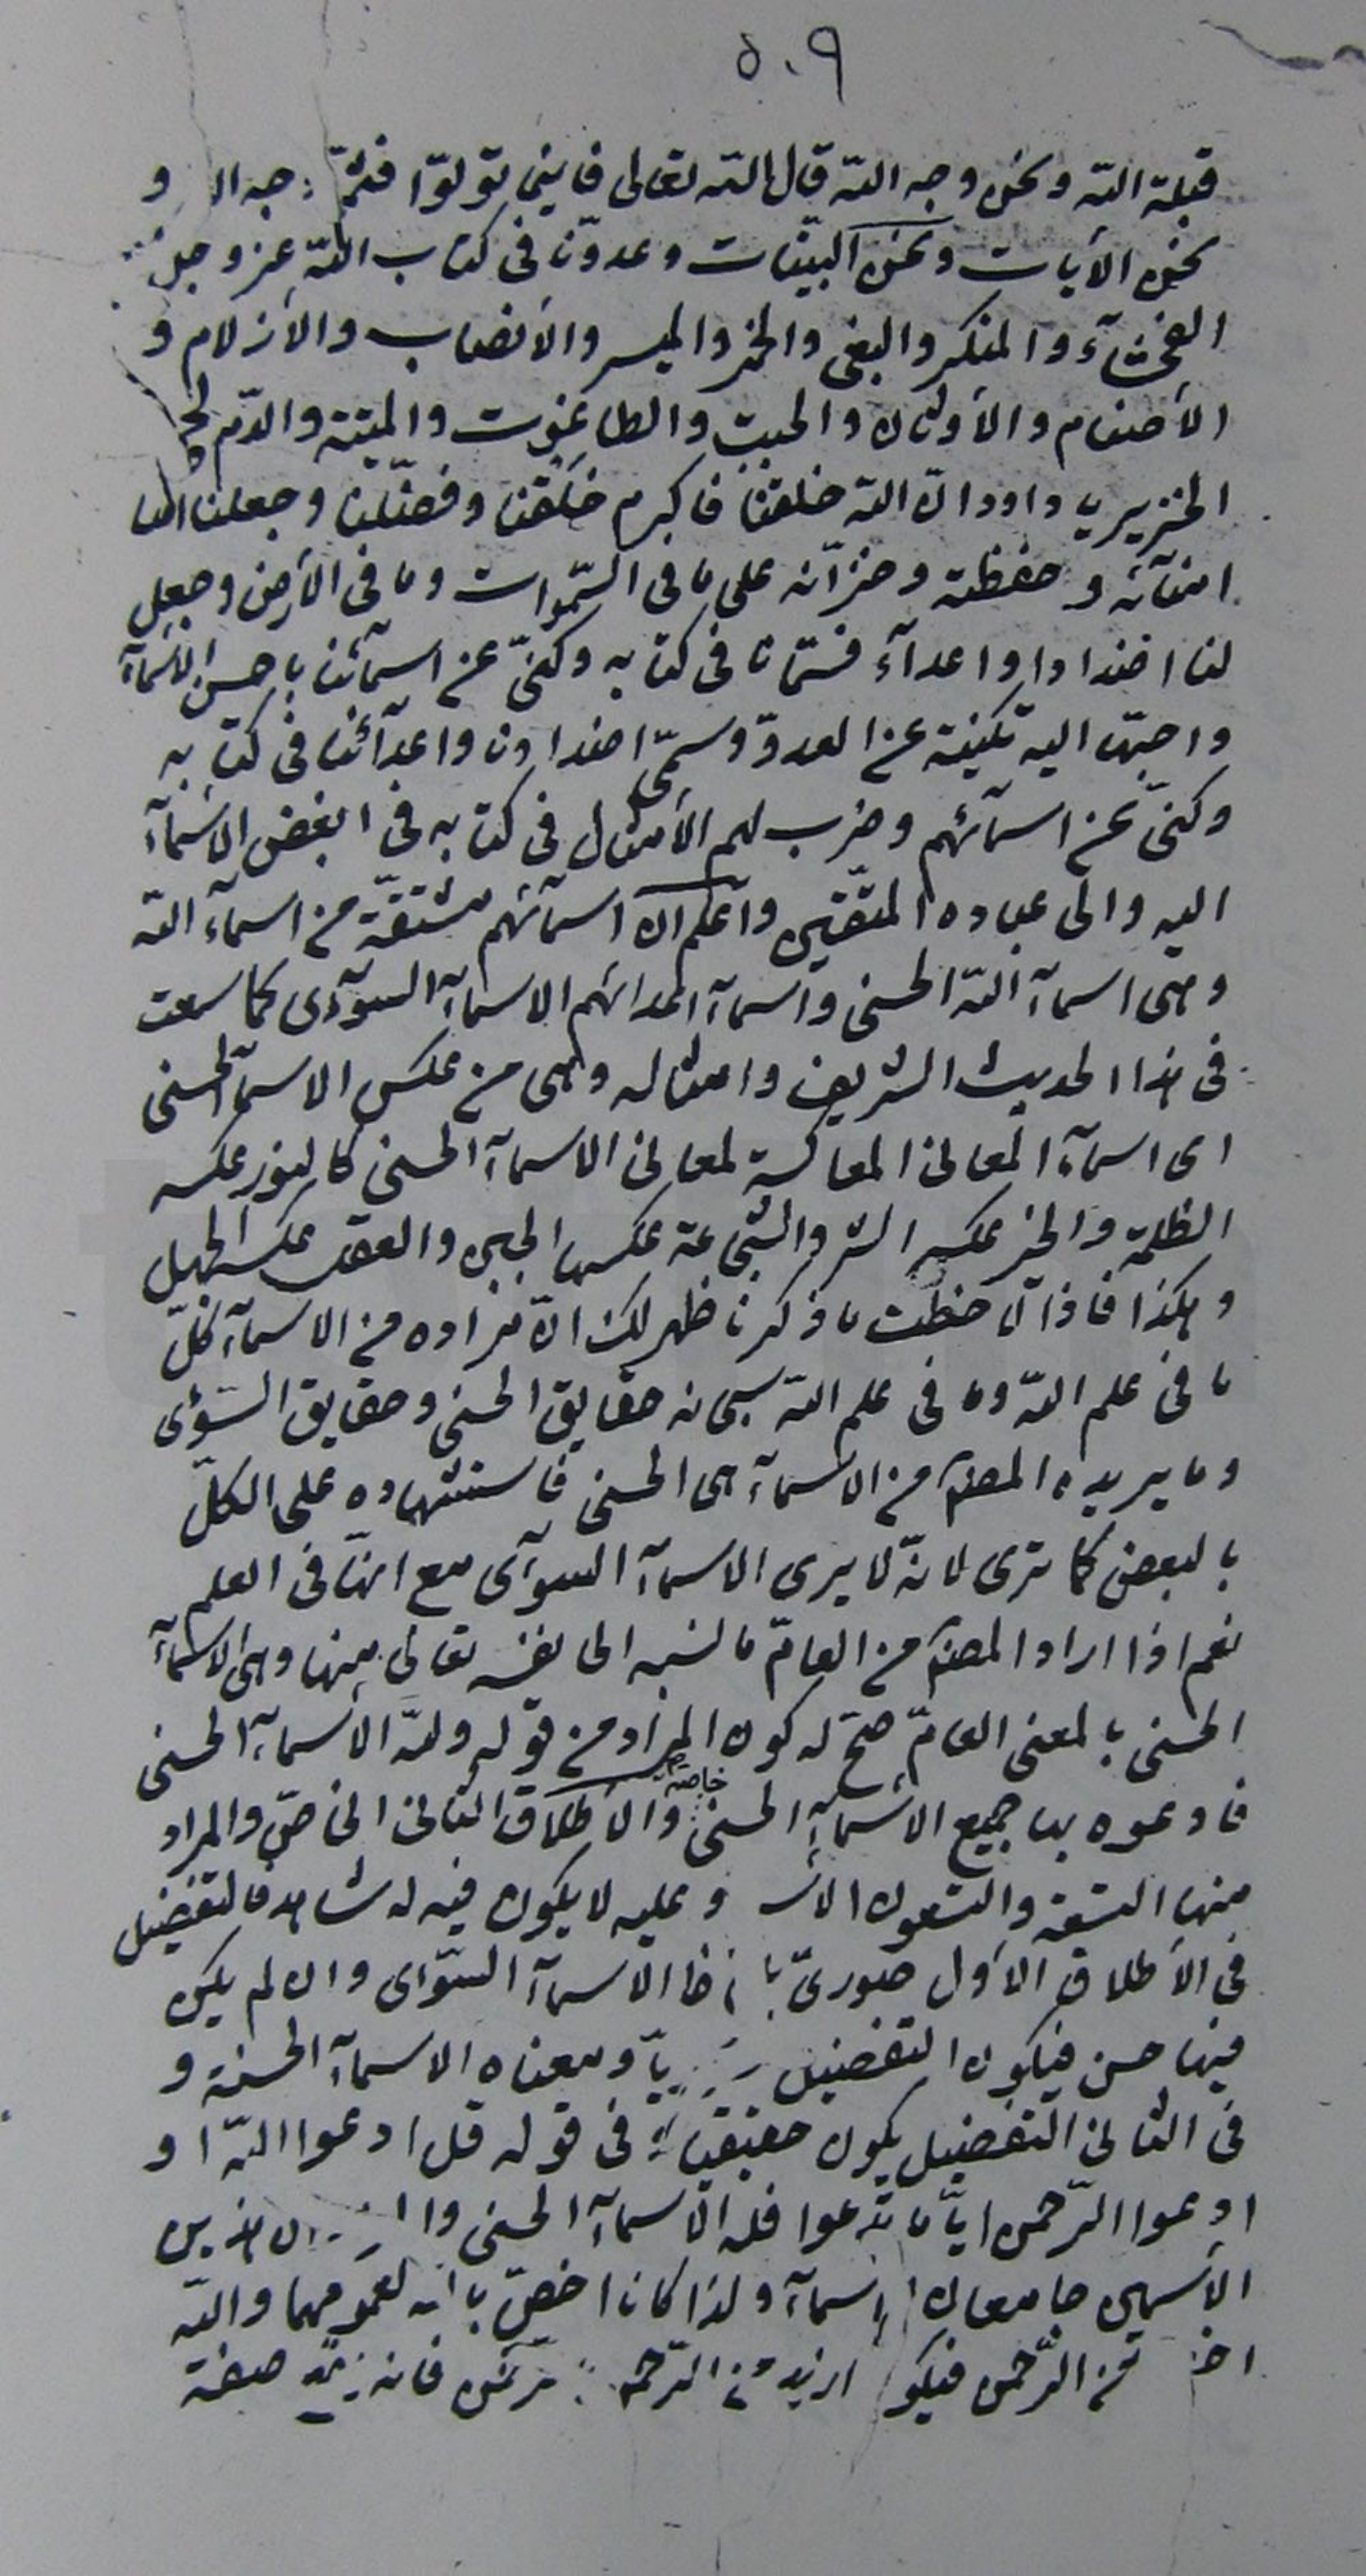 ٥٠٩
قبلة اللّه ونحن وجه اللّه قال اللّه تعالى فاينما تولّوا فثمّ وجه و
نحن الآيات ونحن البيّنات وعدوّنا فى كتاب اللّه عز وجل
الفحشآء والمنكر والبغى والخمر والميسر والأنصاب والأزلام و
الأصنام والأوثان والجبت والطاغوت والميتة والدّم ولحم
الخنزير يا داود انّ اللّه خلقنا فاكرم خلقنا وفضّلنا وجعلنا
امنآئه وحفظته وخزّانه على ما فى السّموات وما فى الأرض وجعل
لنا اضدادا واعدآء فسمّانا فى كتابه وكنّى عن اسمآئنا باحسن الأسمآء
واحبّها اليه تكنية عن العدوّ وسمّى اضدادنا واعدآئنا فى كتابه
وكنّى عن اسمآئهم وضرب لهم الأمثال فى كتابه فى ابغض الأسمآء
اليه والى عباده المتّقين واعلم ان اسمآئهم مشتقّة من اسمآء اللّه
وهى اسمآء اللّه الحسنى واسمآء اعدائهم الاسمآء السوآى كما سمعت
فى هذا الحديث الشريف وامثاله وهى من عكس الاسمآء الحسنى
اى اسمآء المعانى المعاكسة لمعانى الاسمآء الحسنى كالنور عكسه
الظلمة والخير عكسه الشر والشجاعة عكسها الجبن والعقل عكسه الجهل
وهكذا فاذا لاحظت ما ذكرنا ظهر لك انّ مراده من الاسمآء كلّ
ما فى علم اللّه وما فى علم اللّه سبحانه حقايق الحسنى وحقايق السّوٓى
وما يريده المصنّف من الاسمآء هى الحسنى فاستشهاده على الكلّ
بالبعض كما ترى لانّه لا يرى الاسمآء السوآى مع انهّا فى العلم
نعم اذا اراد المصنّف من العامّ ما نسبه الى نفسه تعالى منها وهى الاسمآء
الحسنى بالمعنى العامّ صحّ له كون المراد من قوله وللّه الأسمآء الحسنى
فادعوه بها جميع الاسمآء الحسنى خاصّة والأطلاق الثانى الخاصّ والمراد
منها التسعة والتسعون وعليه لا يكون فيه له شاهد فالتفضيل
فى الأطلاق الأول صورىّ الاسمآء السّوٓاى وان لم يكن
فيها حسن فيكون التفضيل ومعناه الاسمآء الحسنة و
فى الثانى التفضيل يكون حقيقيا فى قوله قل ادعوا اللّه او
ادعوا الرّحمن ايّا ما تدعوا فله الأسمآء الحسنى هذين
الأسمين جامعان ولذا كانا اخصّ به لعمومهما واللّه
من الرّحمن صفة